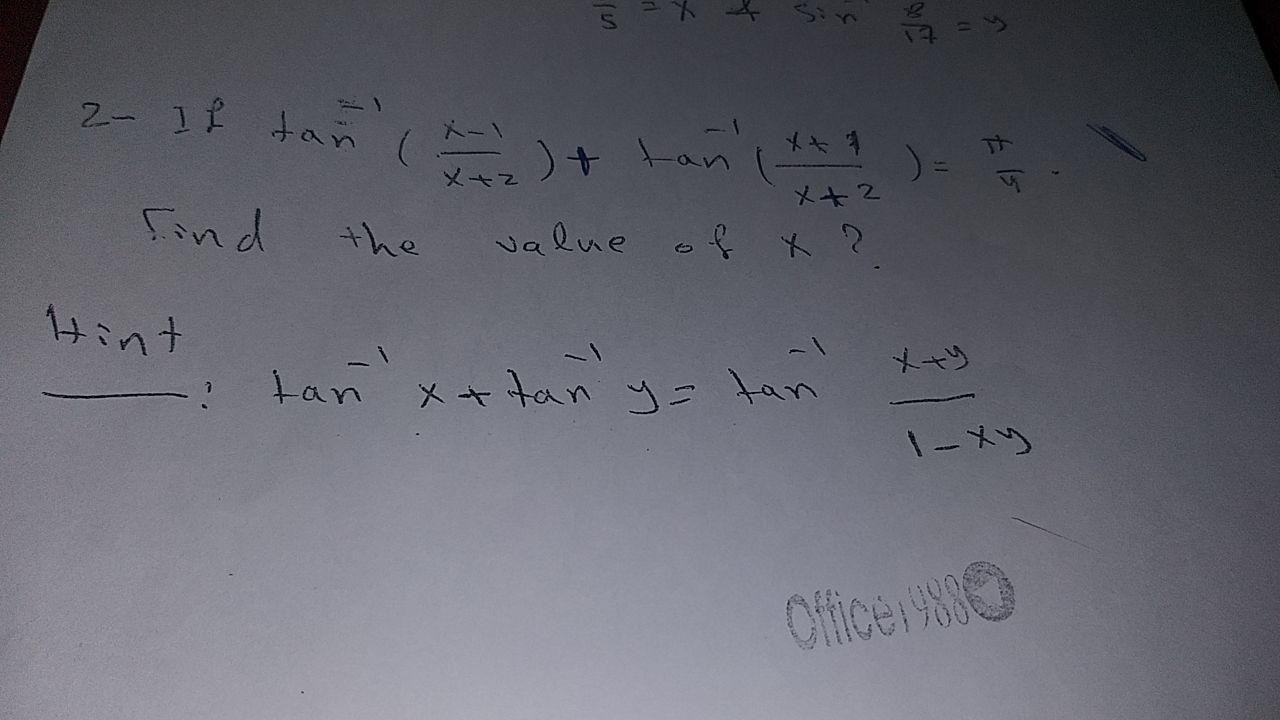 /5 = x + sin⁻ 8/17 = y
2- If tan⁻¹ ( x-1 / x+2 ) + tan⁻¹ ( x+1 / x+2 ) = π/4 .
Find the value of x ?
Hint : tan⁻¹ x + tan⁻¹ y = tan⁻¹ x+y / 1-xy
Office1988